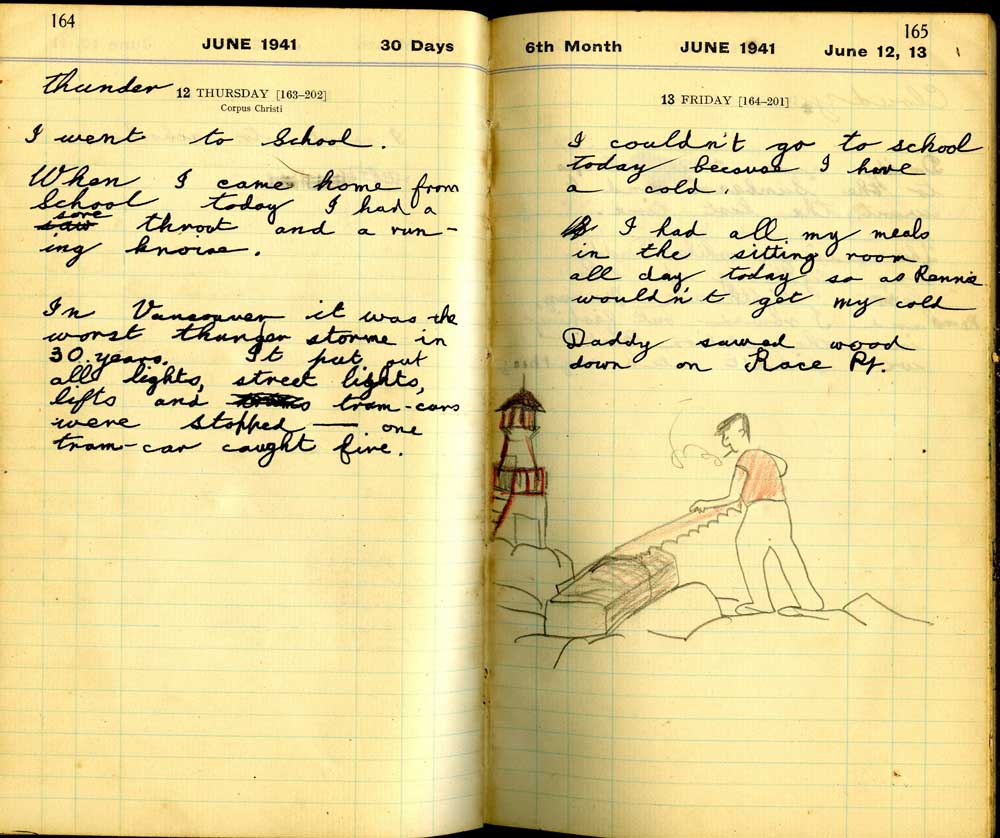 164
JUNE 1941 30 Days
thunder
12 THURSDAY [163–202]
Corpus Christi
I went to School.
When I came home from
School today I had a
sore
saw throut and a run-
ing knowse.
In Vancouver it was the
worst thunger storme in
30 years. It put out
all lights, street lights,
lifts and trams tram-cars
were stopped — one
tram-car caught fire.
165
6th Month JUNE 1941 June 12, 13
13 FRIDAY [164–201]
I couldn't go to school
today because I have
a cold.
I had all my meals
in the sitting room
all day today so as Rennie
wouldn't get my cold
Daddy sawed wood
down on Race Pt.